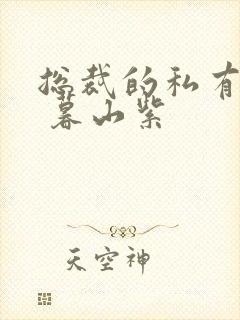 总裁的私有
暮山紫
天空神